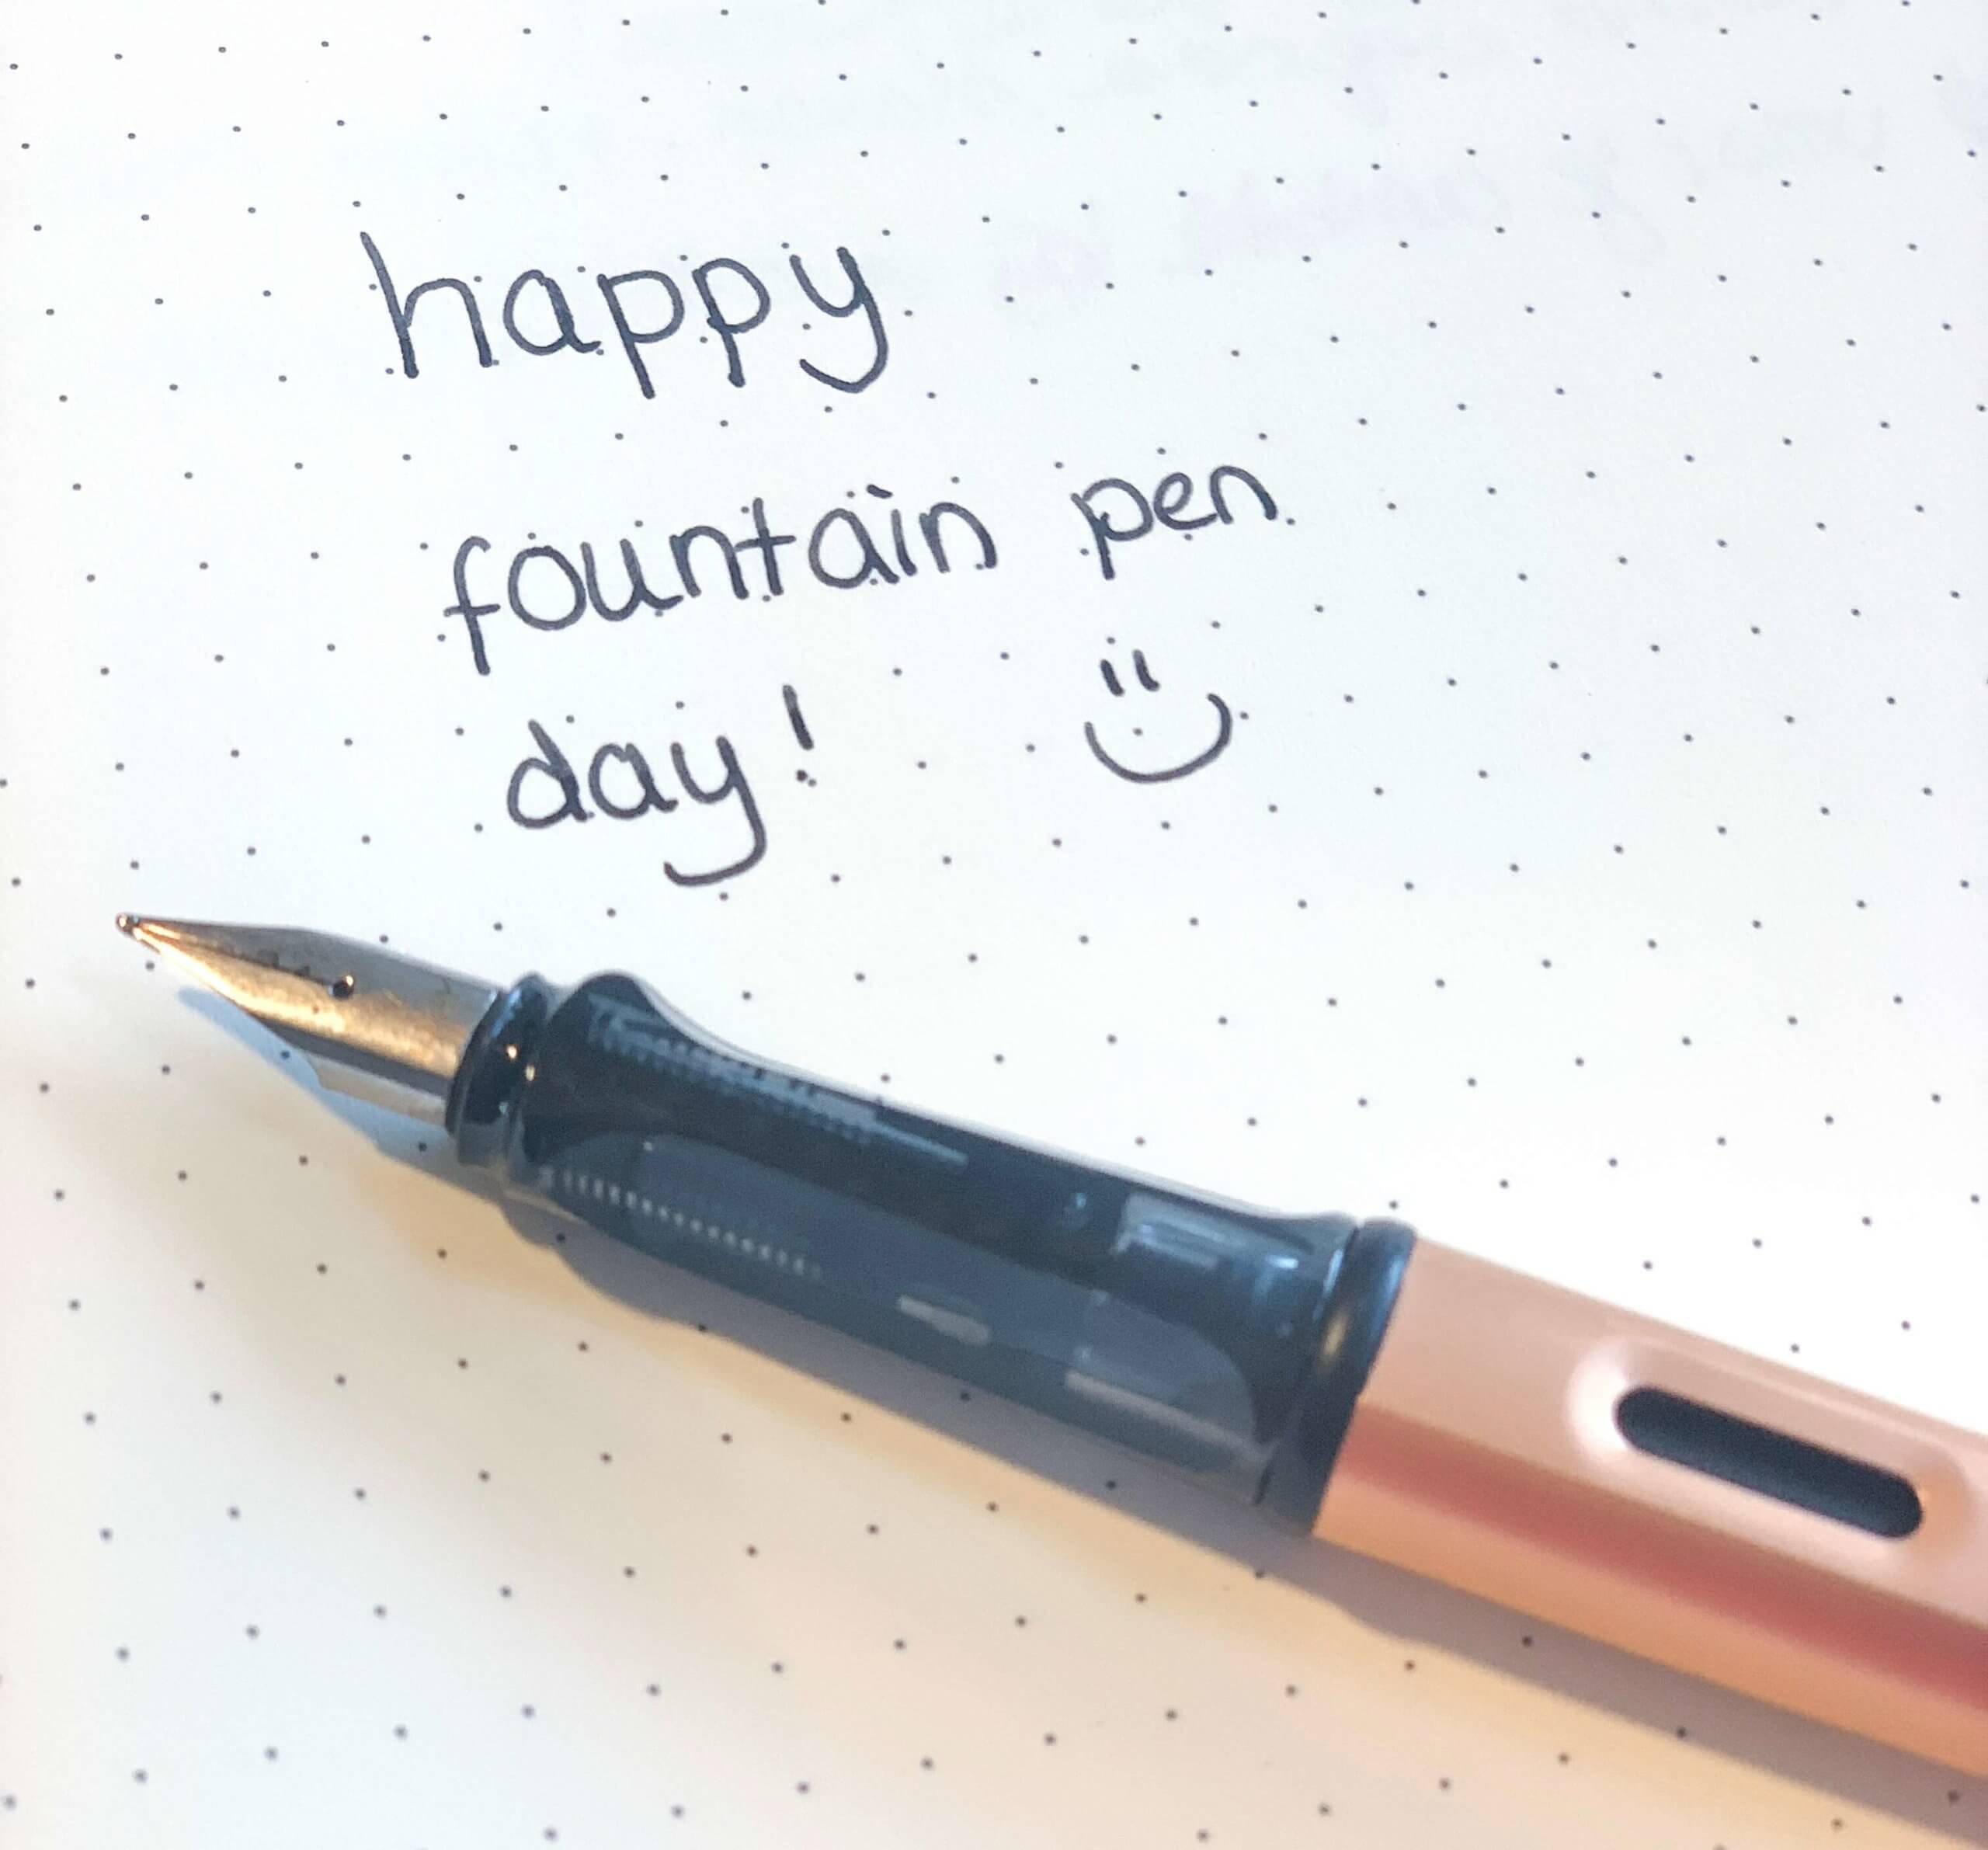 happy
fountain pen
day!